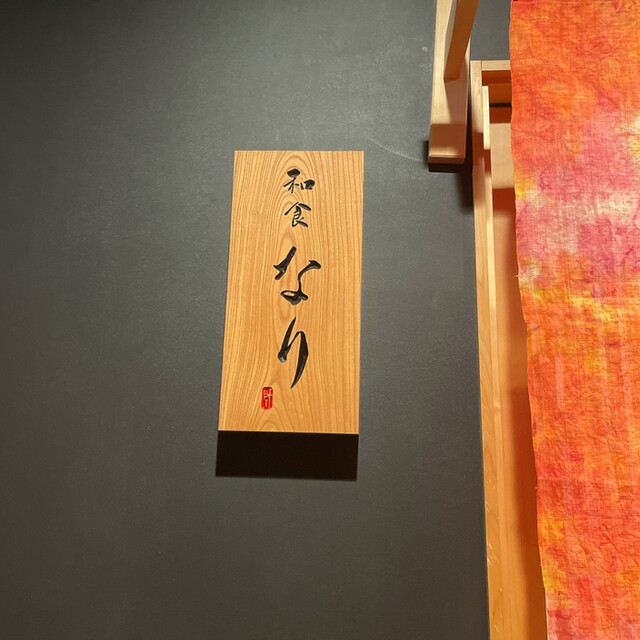 和食
なり